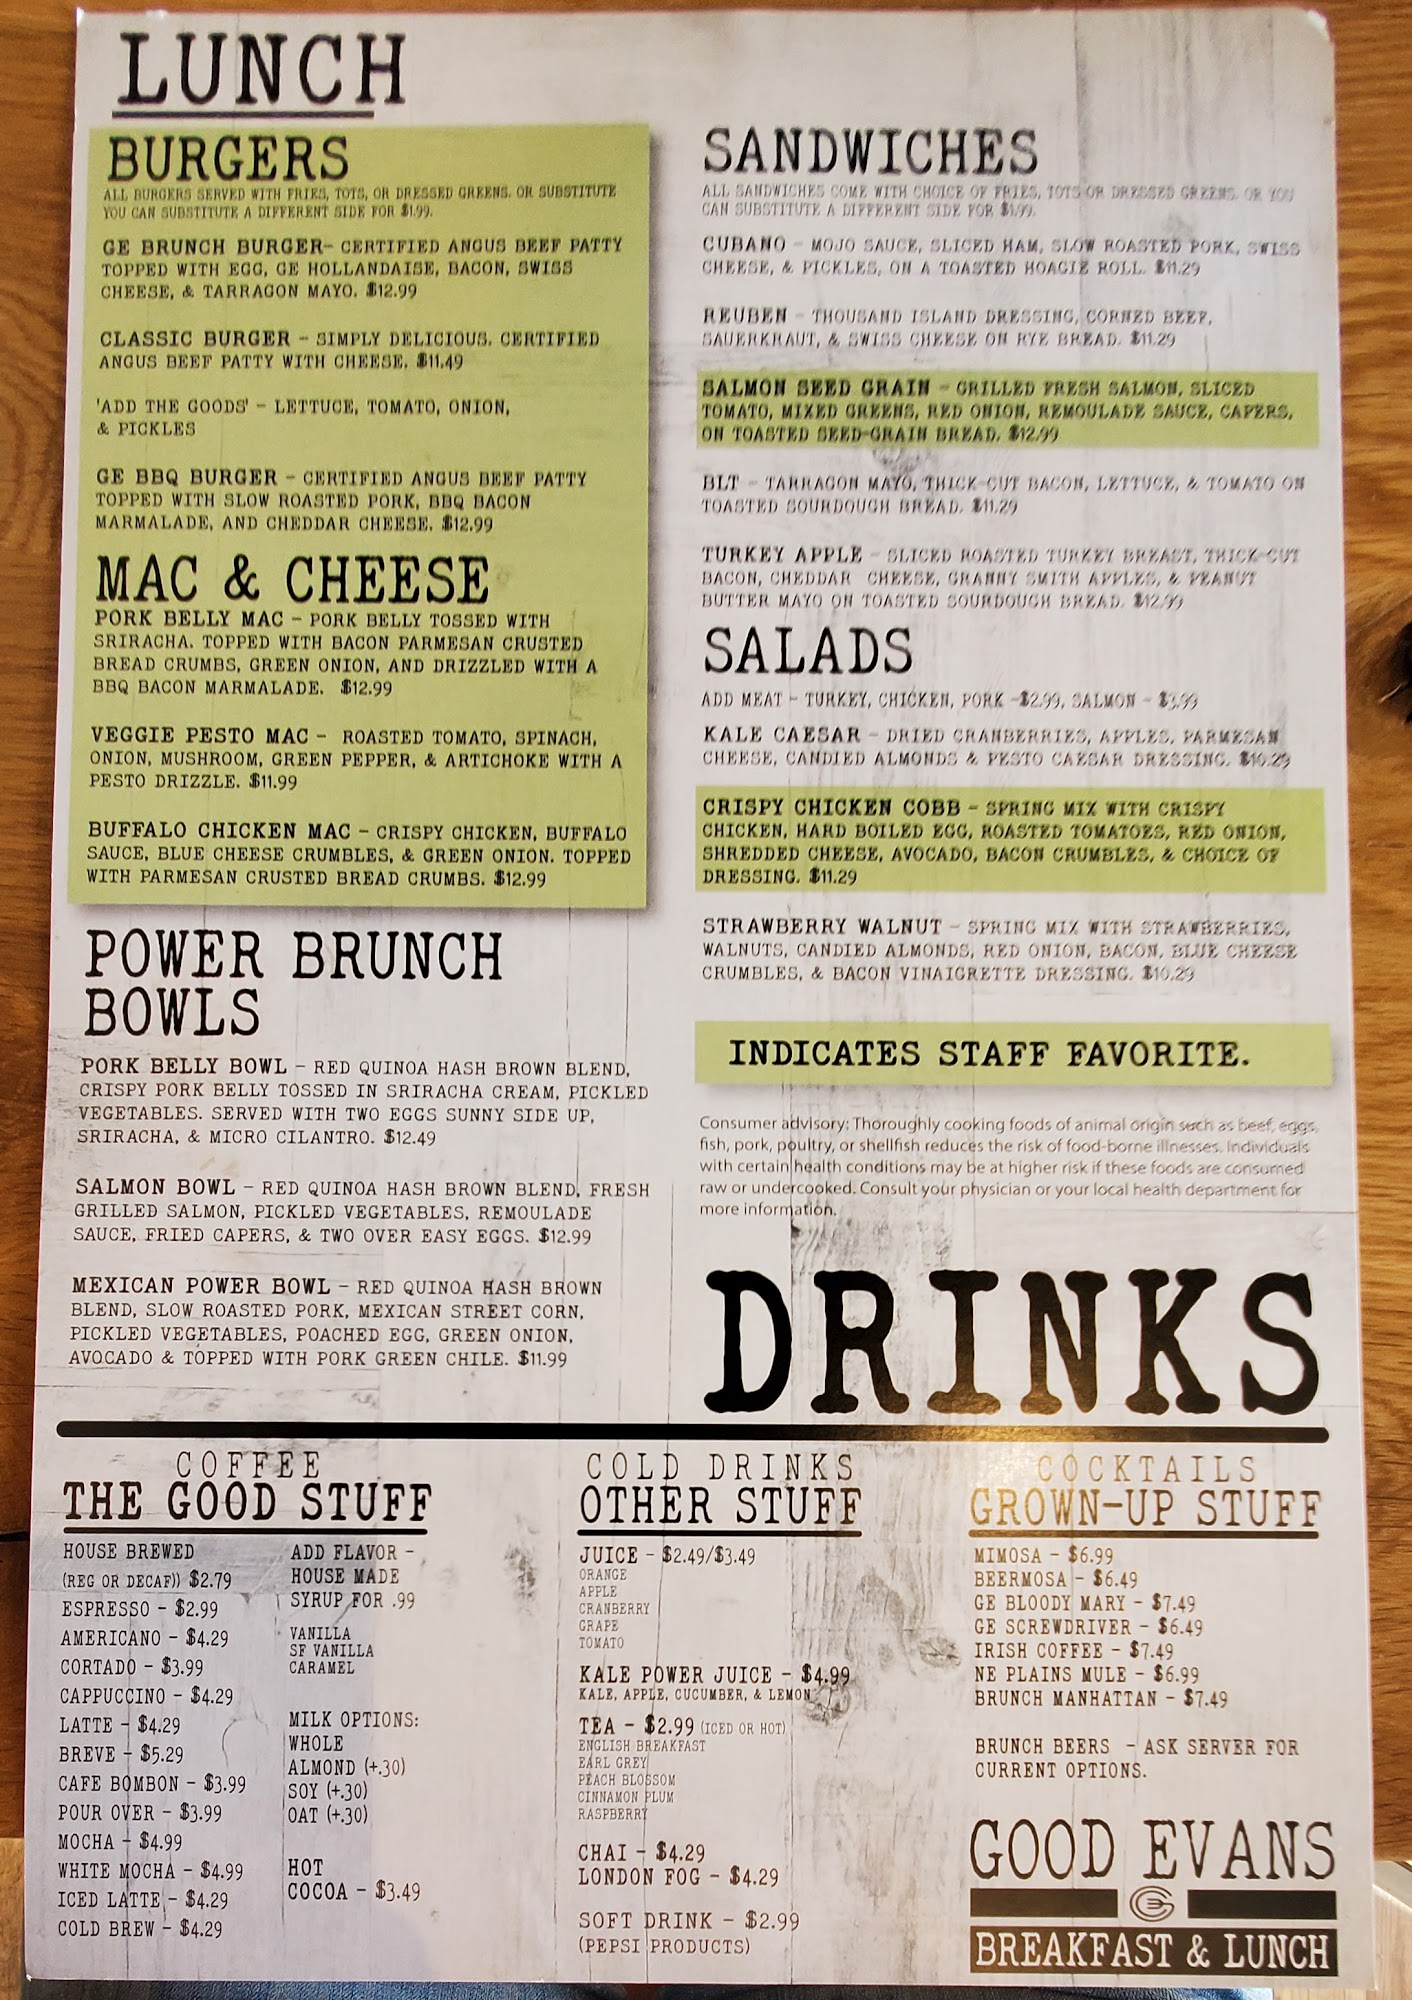 LUNCH
BURGERS
ALL BURGERS SERVED WITH FRIES, TOTS, OR DRESSED GREENS. OR SUBSTITUTE
YOU CAN SUBSTITUTE A DIFFERENT SIDE FOR $1.99.
GE BRUNCH BURGER- CERTIFIED ANGUS BEEF PATTY
TOPPED WITH EGG, GE HOLLANDAISE, BACON, SWISS
CHEESE, & TARRAGON MAYO. $12.99
CLASSIC BURGER - SIMPLY DELICIOUS. CERTIFIED
ANGUS BEEF PATTY WITH CHEESE. $11.49
'ADD THE GOODS' - LETTUCE, TOMATO, ONION,
& PICKLES
GE BBQ BURGER - CERTIFIED ANGUS BEEF PATTY
TOPPED WITH SLOW ROASTED PORK, BBQ BACON
MARMALADE, AND CHEDDAR CHEESE. $12.99
MAC & CHEESE
PORK BELLY MAC - PORK BELLY TOSSED WITH
SRIRACHA. TOPPED WITH BACON PARMESAN CRUSTED
BREAD CRUMBS, GREEN ONION, AND DRIZZLED WITH A
BBQ BACON MARMALADE. $12.99
VEGGIE PESTO MAC - ROASTED TOMATO, SPINACH,
ONION, MUSHROOM, GREEN PEPPER, & ARTICHOKE WITH A
PESTO DRIZZLE. $11.99
BUFFALO CHICKEN MAC - CRISPY CHICKEN, BUFFALO
SAUCE, BLUE CHEESE CRUMBLES, & GREEN ONION. TOPPED
WITH PARMESAN CRUSTED BREAD CRUMBS. $12.99
POWER BRUNCH
BOWLS
PORK BELLY BOWL - RED QUINOA HASH BROWN BLEND,
CRISPY PORK BELLY TOSSED IN SRIRACHA CREAM, PICKLED
VEGETABLES. SERVED WITH TWO EGGS SUNNY SIDE UP,
SRIRACHA, & MICRO CILANTRO. $12.49
SALMON BOWL - RED QUINOA HASH BROWN BLEND, FRESH
GRILLED SALMON, PICKLED VEGETABLES, REMOULADE
SAUCE, FRIED CAPERS, & TWO OVER EASY EGGS. $12.99
MEXICAN POWER BOWL - RED QUINOA HASH BROWN
BLEND, SLOW ROASTED PORK, MEXICAN STREET CORN,
PICKLED VEGETABLES, POACHED EGG, GREEN ONION,
AVOCADO & TOPPED WITH PORK GREEN CHILE. $11.99
SANDWICHES
ALL SANDWICHES COME WITH CHOICE OF FRIES, TOTS OR DRESSED GREENS. OR YOU
CAN SUBSTITUTE A DIFFERENT SIDE FOR $1.99.
CUBANO - MOJO SAUCE, SLICED HAM, SLOW ROASTED PORK, SWISS
CHEESE, & PICKLES, ON A TOASTED HOAGIE ROLL. $11.29
REUBEN - THOUSAND ISLAND DRESSING, CORNED BEEF,
SAUERKRAUT, & SWISS CHEESE ON RYE BREAD. $11.29
SALMON SEED GRAIN - GRILLED FRESH SALMON, SLICED
TOMATO, MIXED GREENS, RED ONION, REMOULADE SAUCE, CAPERS,
ON TOASTED SEED-GRAIN BREAD. $12.99
BLT - TARRAGON MAYO, THICK-CUT BACON, LETTUCE, & TOMATO ON
TOASTED SOURDOUGH BREAD. $11.29
TURKEY APPLE - SLICED ROASTED TURKEY BREAST, THICK-CUT
BACON, CHEDDAR CHEESE, GRANNY SMITH APPLES, & PEANUT
BUTTER MAYO ON TOASTED SOURDOUGH BREAD. $12.99
SALADS
ADD MEAT - TURKEY, CHICKEN, PORK -$2.99, SALMON - $3.99
KALE CAESAR - DRIED CRANBERRIES, APPLES, PARMESAN
CHEESE, CANDIED ALMONDS & PESTO CAESAR DRESSING. $10.29
CRISPY CHICKEN COBB - SPRING MIX WITH CRISPY
CHICKEN, HARD BOILED EGG, ROASTED TOMATOES, RED ONION,
SHREDDED CHEESE, AVOCADO, BACON CRUMBLES, & CHOICE OF
DRESSING. $11.29
STRAWBERRY WALNUT - SPRING MIX WITH STRAWBERRIES,
WALNUTS, CANDIED ALMONDS, RED ONION, BACON, BLUE CHEESE
CRUMBLES, & BACON VINAIGRETTE DRESSING. $10.29
INDICATES STAFF FAVORITE.
Consumer advisory: Thoroughly cooking foods of animal origin such as beef, eggs,
fish, pork, poultry, or shellfish reduces the risk of food-borne illnesses. Individuals
with certain health conditions may be at higher risk if these foods are consumed
raw or undercooked. Consult your physician or your local health department for
more information.
DRINKS
COFFEE
THE GOOD STUFF
HOUSE BREWED
(REG OR DECAF)) $2.79
ESPRESSO - $2.99
AMERICANO - $4.29
CORTADO - $3.99
CAPPUCCINO - $4.29
LATTE - $4.29
BREVE - $5.29
CAFE BOMBON - $3.99
POUR OVER - $3.99
MOCHA - $4.99
WHITE MOCHA - $4.99
ICED LATTE - $4.29
COLD BREW - $4.29
ADD FLAVOR -
HOUSE MADE
SYRUP FOR .99
VANILLA
SF VANILLA
CARAMEL
MILK OPTIONS:
WHOLE
ALMOND (+.30)
SOY (+.30)
OAT (+.30)
HOT
COCOA - $3.49
COLD DRINKS
OTHER STUFF
JUICE - $2.49/$3.49
ORANGE
APPLE
CRANBERRY
GRAPE
TOMATO
KALE POWER JUICE - $4.99
KALE, APPLE, CUCUMBER, & LEMON
TEA - $2.99 (ICED OR HOT)
ENGLISH BREAKFAST
EARL GREY
PEACH BLOSSOM
CINNAMON PLUM
RASPBERRY
CHAI - $4.29
LONDON FOG - $4.29
SOFT DRINK - $2.99
(PEPSI PRODUCTS)
COCKTAILS
GROWN-UP STUFF
MIMOSA - $6.99
BEERMOSA - $6.49
GE BLOODY MARY - $7.49
GE SCREWDRIVER - $6.49
IRISH COFFEE - $7.49
NE PLAINS MULE - $6.99
BRUNCH MANHATTAN - $7.49
BRUNCH BEERS - ASK SERVER FOR
CURRENT OPTIONS.
GOOD EVANS
BREAKFAST & LUNCH